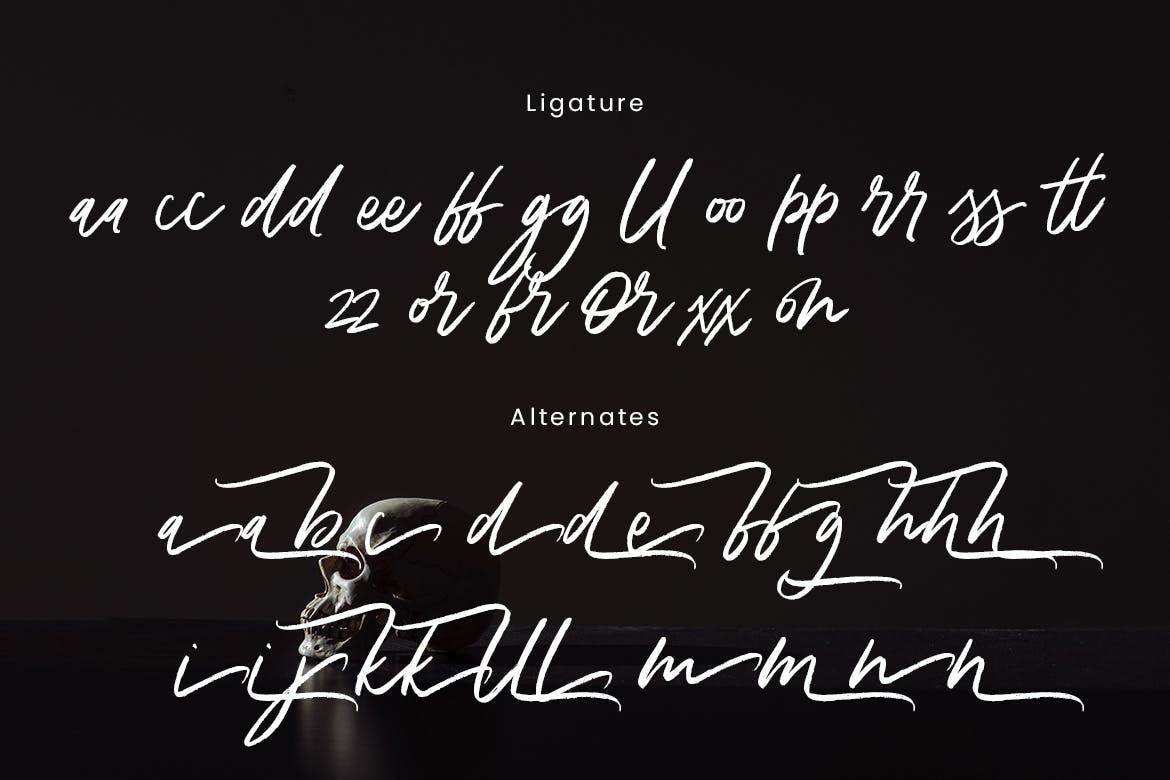 Ligature
aa cc dd ee ff gg ll oo pp rr ss tt
zz or fr Or xx on
Alternates
a a b c d d e f f g h h h
i i j k k l l l m m n n